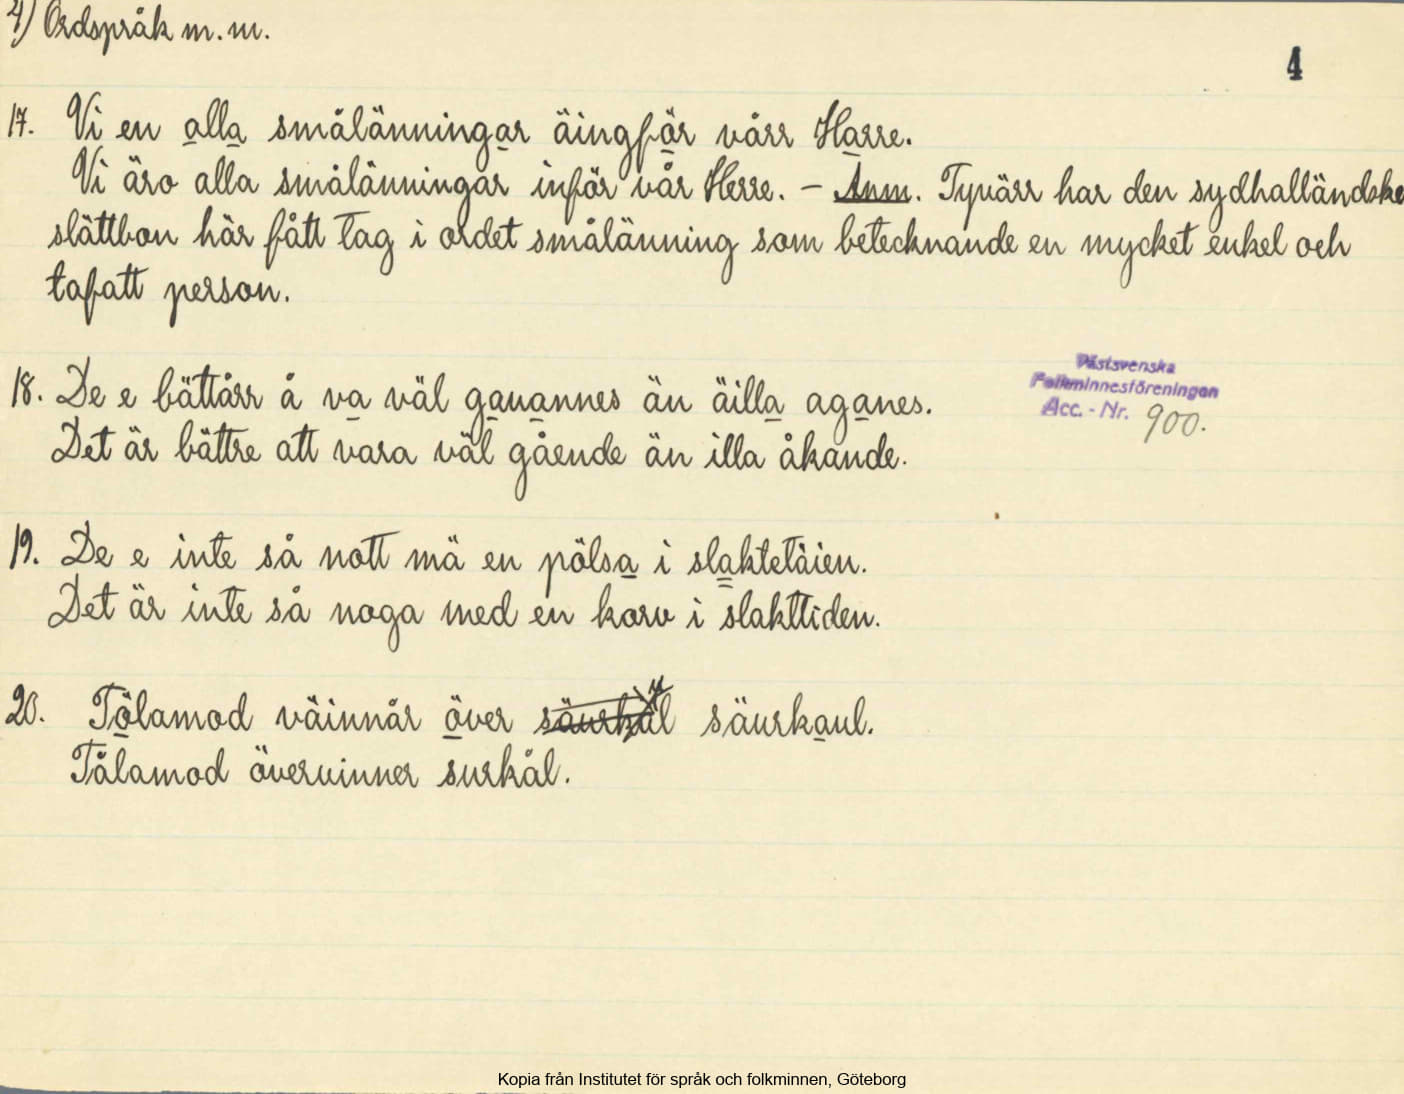 4) Ordspråk m.m.
4
17. Vi en alla smålänningar äingfär vårr Harre.
Vi äro alla smålänningar inför vår Herre. – Anm. Tyvärr har den sydhalländske
slättbon här fått tag i ordet smålänning som betecknande en mycket enkel och
tafatt person.
Västsvenska
Folkminnesföreningen
Acc. - Nr. 900.
18. De e bättårr å va väl gauannes än äilla aganes.
Det är bättre att vara väl gående än illa åkande.
19. De e inte så nott mä en pölsa i slaktetäien.
Det är inte så noga med en korv i slakttiden.
20. Tölamod väinnår över säurkaul.
Tålamod övervinner surkål.
Kopia från Institutet för språk och folkminnen, Göteborg